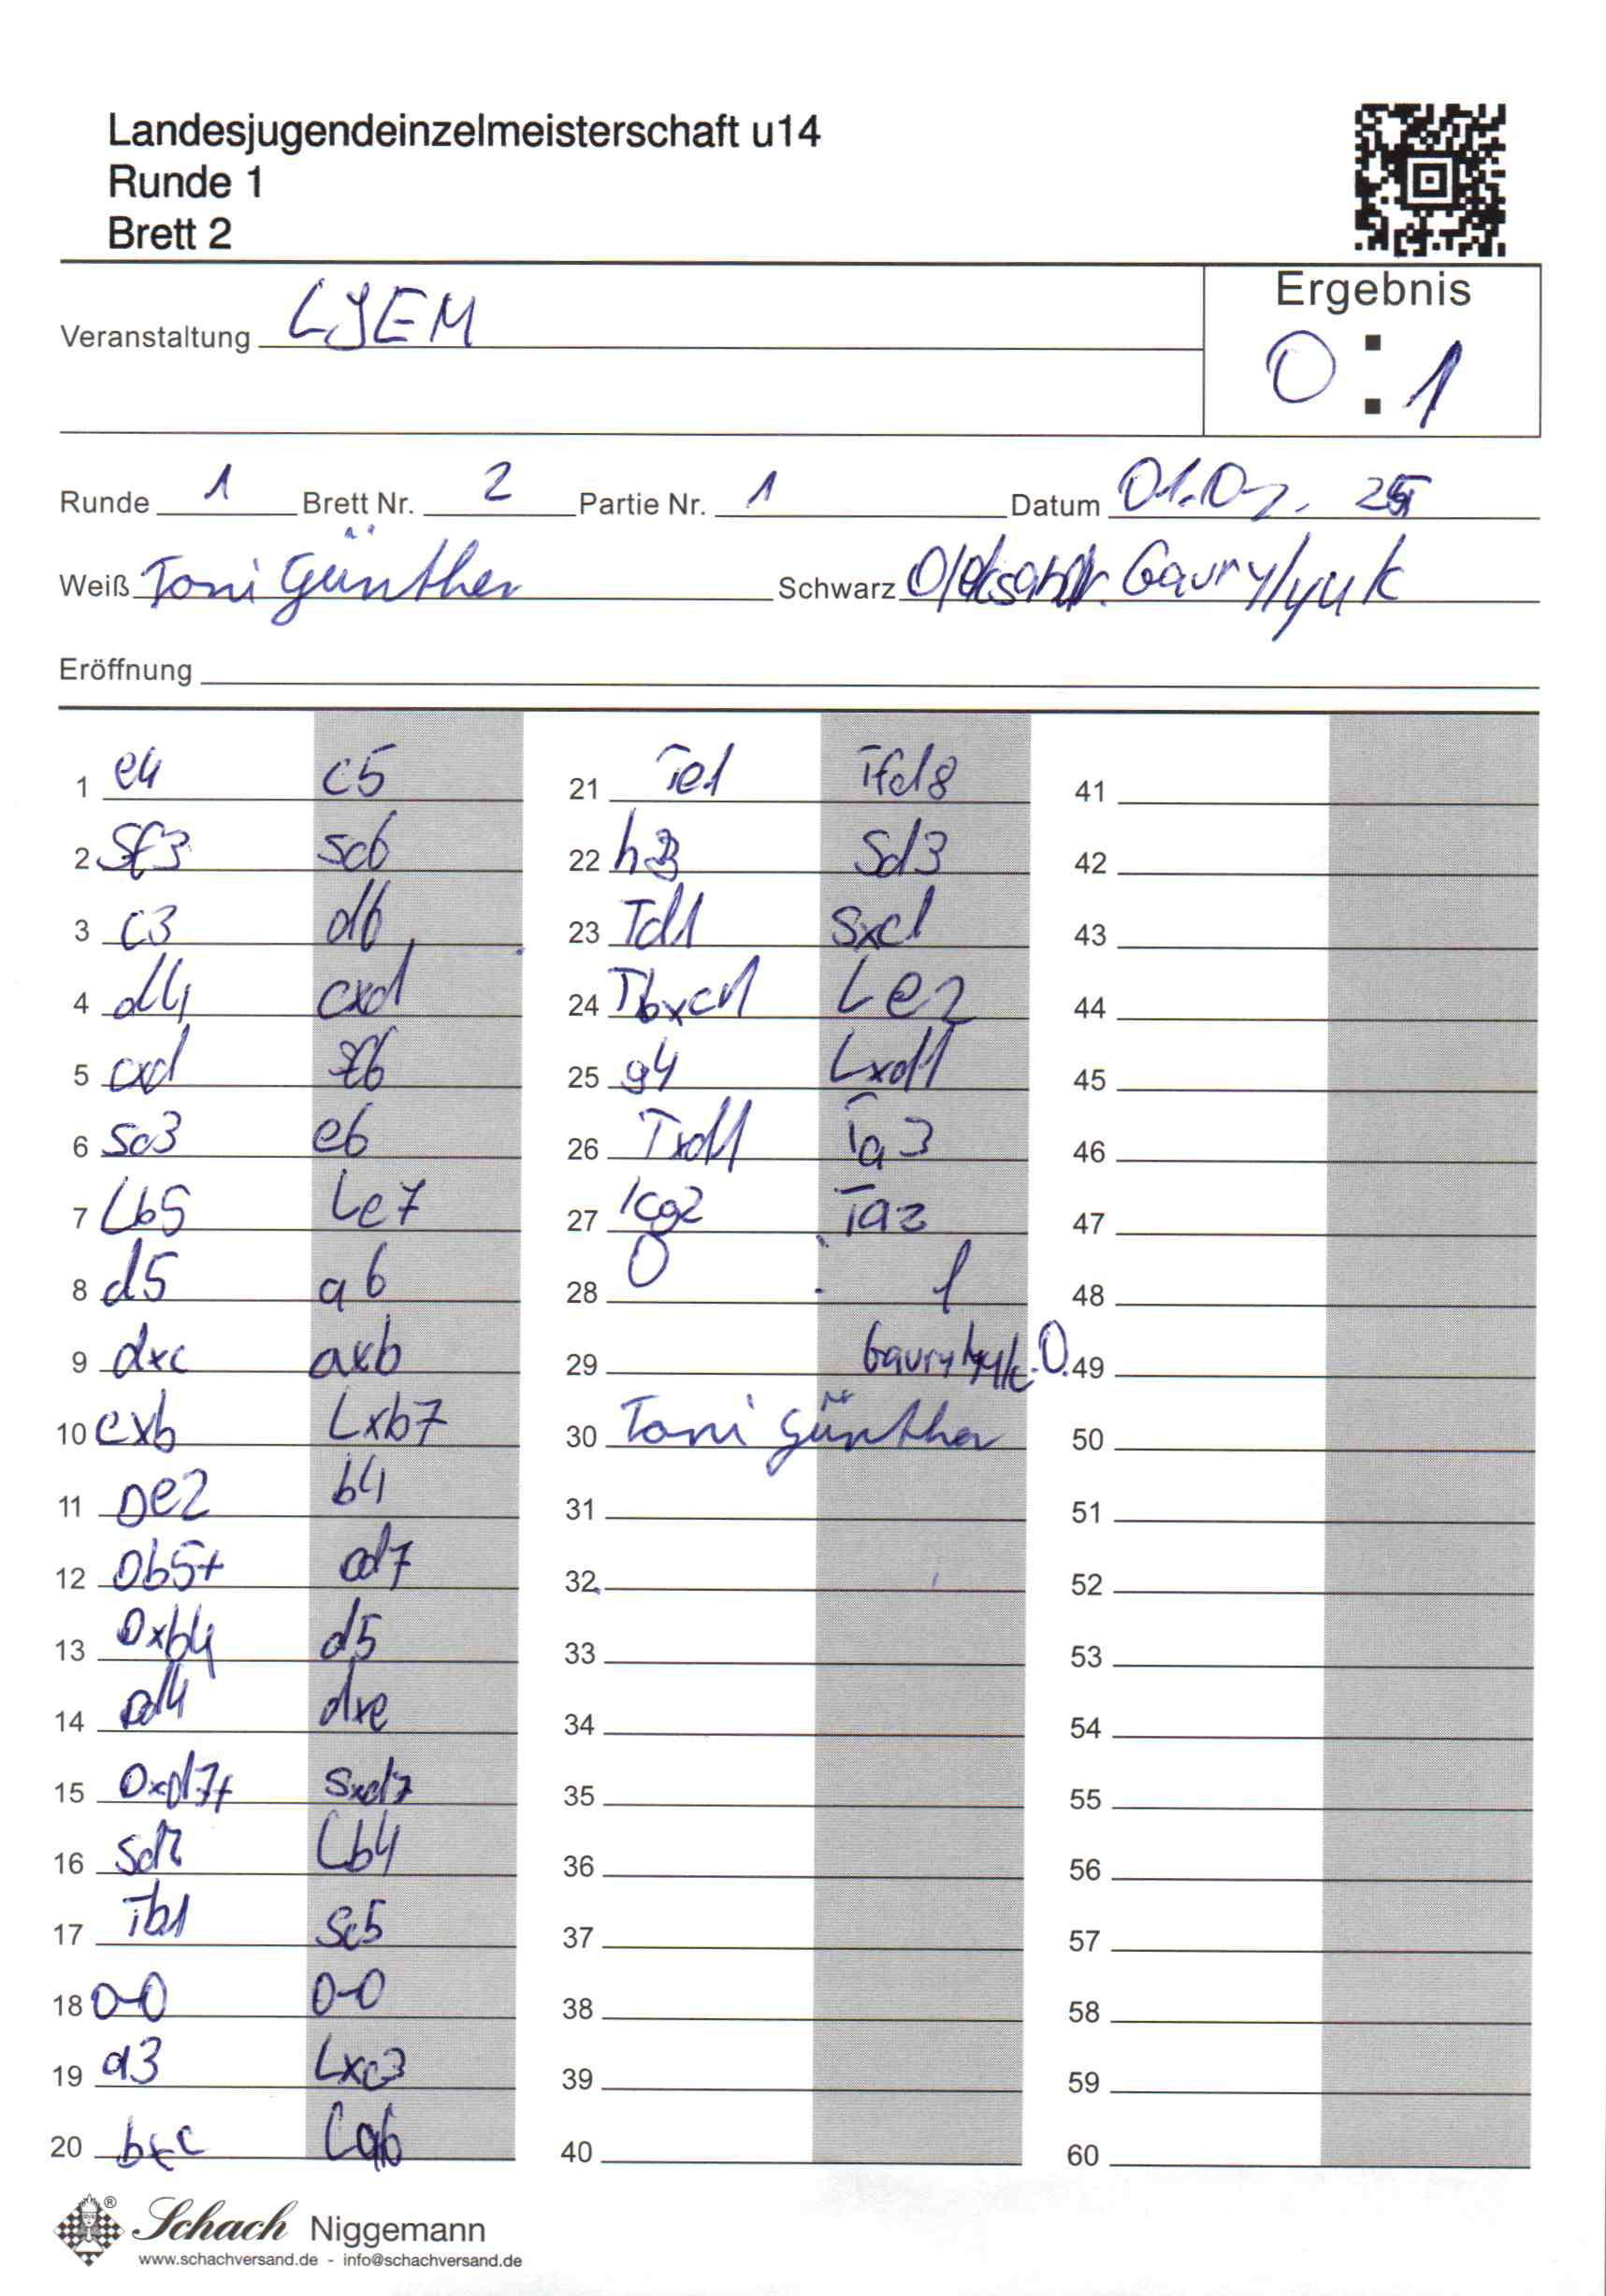 Landesjugendeinzelmeisterschaft u14
Runde 1
Brett 2
Ergebnis
0 : 1
Veranstaltung LJEM
Runde 1 Brett Nr. 2 Partie Nr. 1 Datum 01.02. 25
Weiß Toni Günther Schwarz Oleksandr. Gavrylyuk
Eröffnung
1 e4 c5
2 Sf3 Sc6
3 c3 d6
4 d4 cxd
5 cxd Sf6
6 Sc3 e6
7 Lb5 Le7
8 d5 a6
9 dxc axb
10 cxb Lxb7
11 De2 b4
12 Db5+ Dd7
13 Dxb4 d5
14 Dd4 dxe
15 Dxd7+ Sxd7
16 Sd2 Lb4
17 Tb1 Sc5
18 0-0 0-0
19 a3 Lxc3
20 bxc La6
21 Te1 Tfd8
22 h3 Sd3
23 Td1 Sxc1
24 Tbxc1 Le2
25 g4 Lxd1
26 Txd1 Ta3
27 Kg2 Ta2
28 0 : 1
29 Gavrylyuk. O.
30 Toni Günther
31
32
33
34
35
36
37
38
39
40
41
42
43
44
45
46
47
48
49
50
51
52
53
54
55
56
57
58
59
60
Schach Niggemann
www.schachversand.de - info@schachversand.de